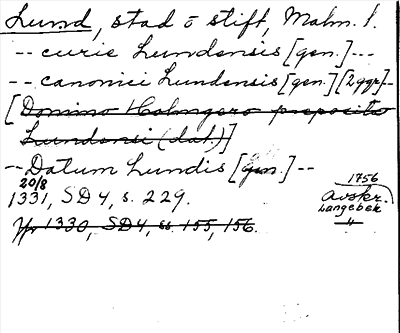 Lund, stad o stift, Malm. l.
-- curie Lundensis [gen.] ---
-- canonici Lundensis [gen.] [2 ggr] --
[Domino Holmgero preposito
Lundensi (dat.)]
-- Datum Lundis [gen.] --
20/8
1331, SD4, s. 229.
1756
Avskr.
Langebek
"
1330, SD4, ss 155, 156.